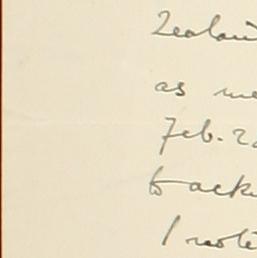 Zealan
as me
Feb. 2
to ack
I note